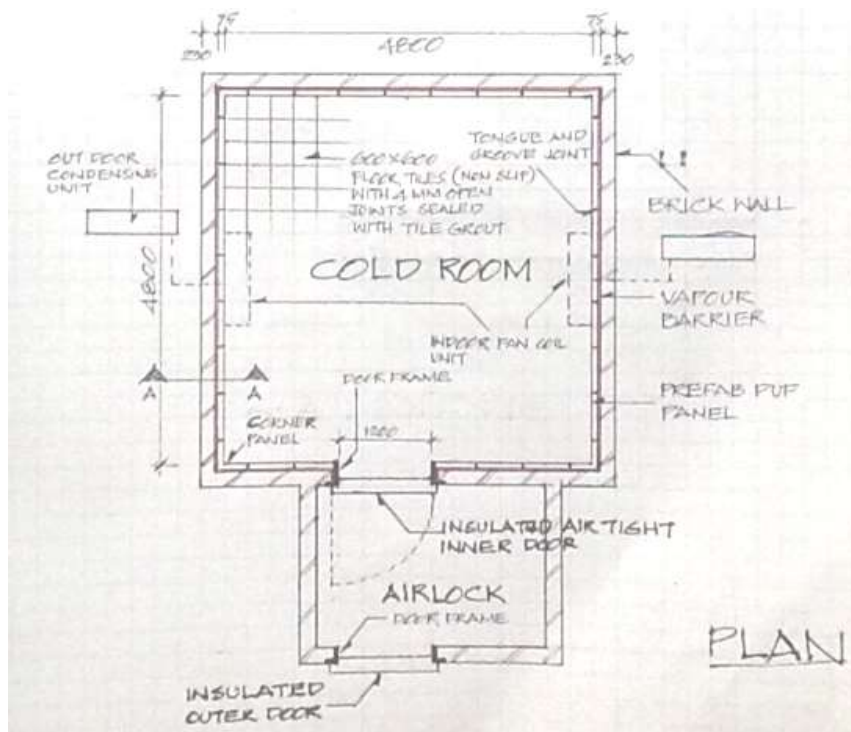 75
75
4800
230
230
OUT DOOR
CONDENSING
UNIT
600X600
FLOOR TILES (NON SLIP)
WITH 4 MM OPEN
JOINTS SEALED
WITH TILE GROUT
TONGUE AND
GROOVE JOINT
BRICK WALL
4800
COLD ROOM
VAPOUR
BARRIER
INDOOR FAN COIL
UNIT
DOOR FRAME
A
A
PREFAB PUF
PANEL
CORNER
PANEL
1200
INSULATED AIR TIGHT
INNER DOOR
AIRLOCK
DOOR FRAME
PLAN
INSULATED
OUTER DOOR